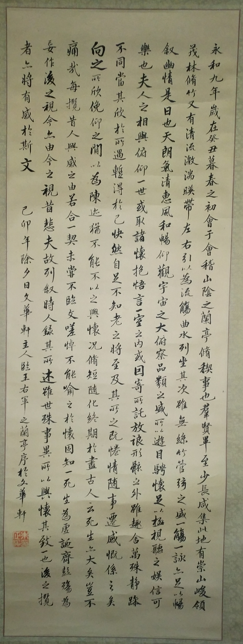 永和九年歲在癸丑暮春之初會于會稽山陰之蘭亭脩稧事也羣賢畢至少長咸集此地有崇山峻領
茂林脩竹又有清流激湍暎帶左右引以為流觴曲水列坐其次雖無絲竹管弦之盛一觴一詠亦足以暢
叙幽情是日也天朗氣清惠風和暢仰觀宇宙之大俯察品類之盛所以遊目騁懷足以極視聽之娛信可
樂也夫人之相與俯仰一世或取諸懷抱悟言一室之内或因寄所託放浪形骸之外雖趣舍萬殊靜躁
不同當其欣於所遇暫得於己快然自足不知老之將至及其所之既惓情隨事遷感慨係之矣
向之所欣俛仰之閒以為陳迹猶不能不以之興懷況脩短隨化終期於盡古人云死生亦大矣豈不
痛哉每攬昔人興感之由若合一契未嘗不臨文嗟悼不能喻之於懷固知一死生為虛誕齊彭殤為
妄作後之視今亦由今之視昔悲夫故列叙時人錄其所述雖世殊事異所以興懷其致一也後之攬
者亦將有感於斯文 己卯年除夕日文華軒主人臨王右軍之蘭亭序於文華軒